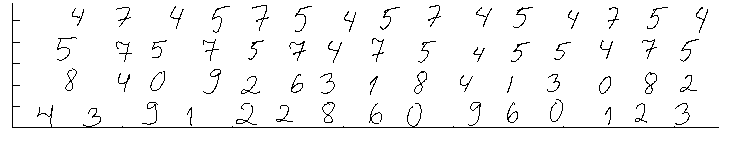 4 7 4 5 7 5 4 5 7 4 5 4 7 5 4
5 7 5 7 5 7 4 7 5 4 5 5 4 7 5
8 4 0 9 2 6 3 1 8 4 1 3 0 8 2
4 3 9 1 2 2 8 6 0 9 6 0 1 2 3